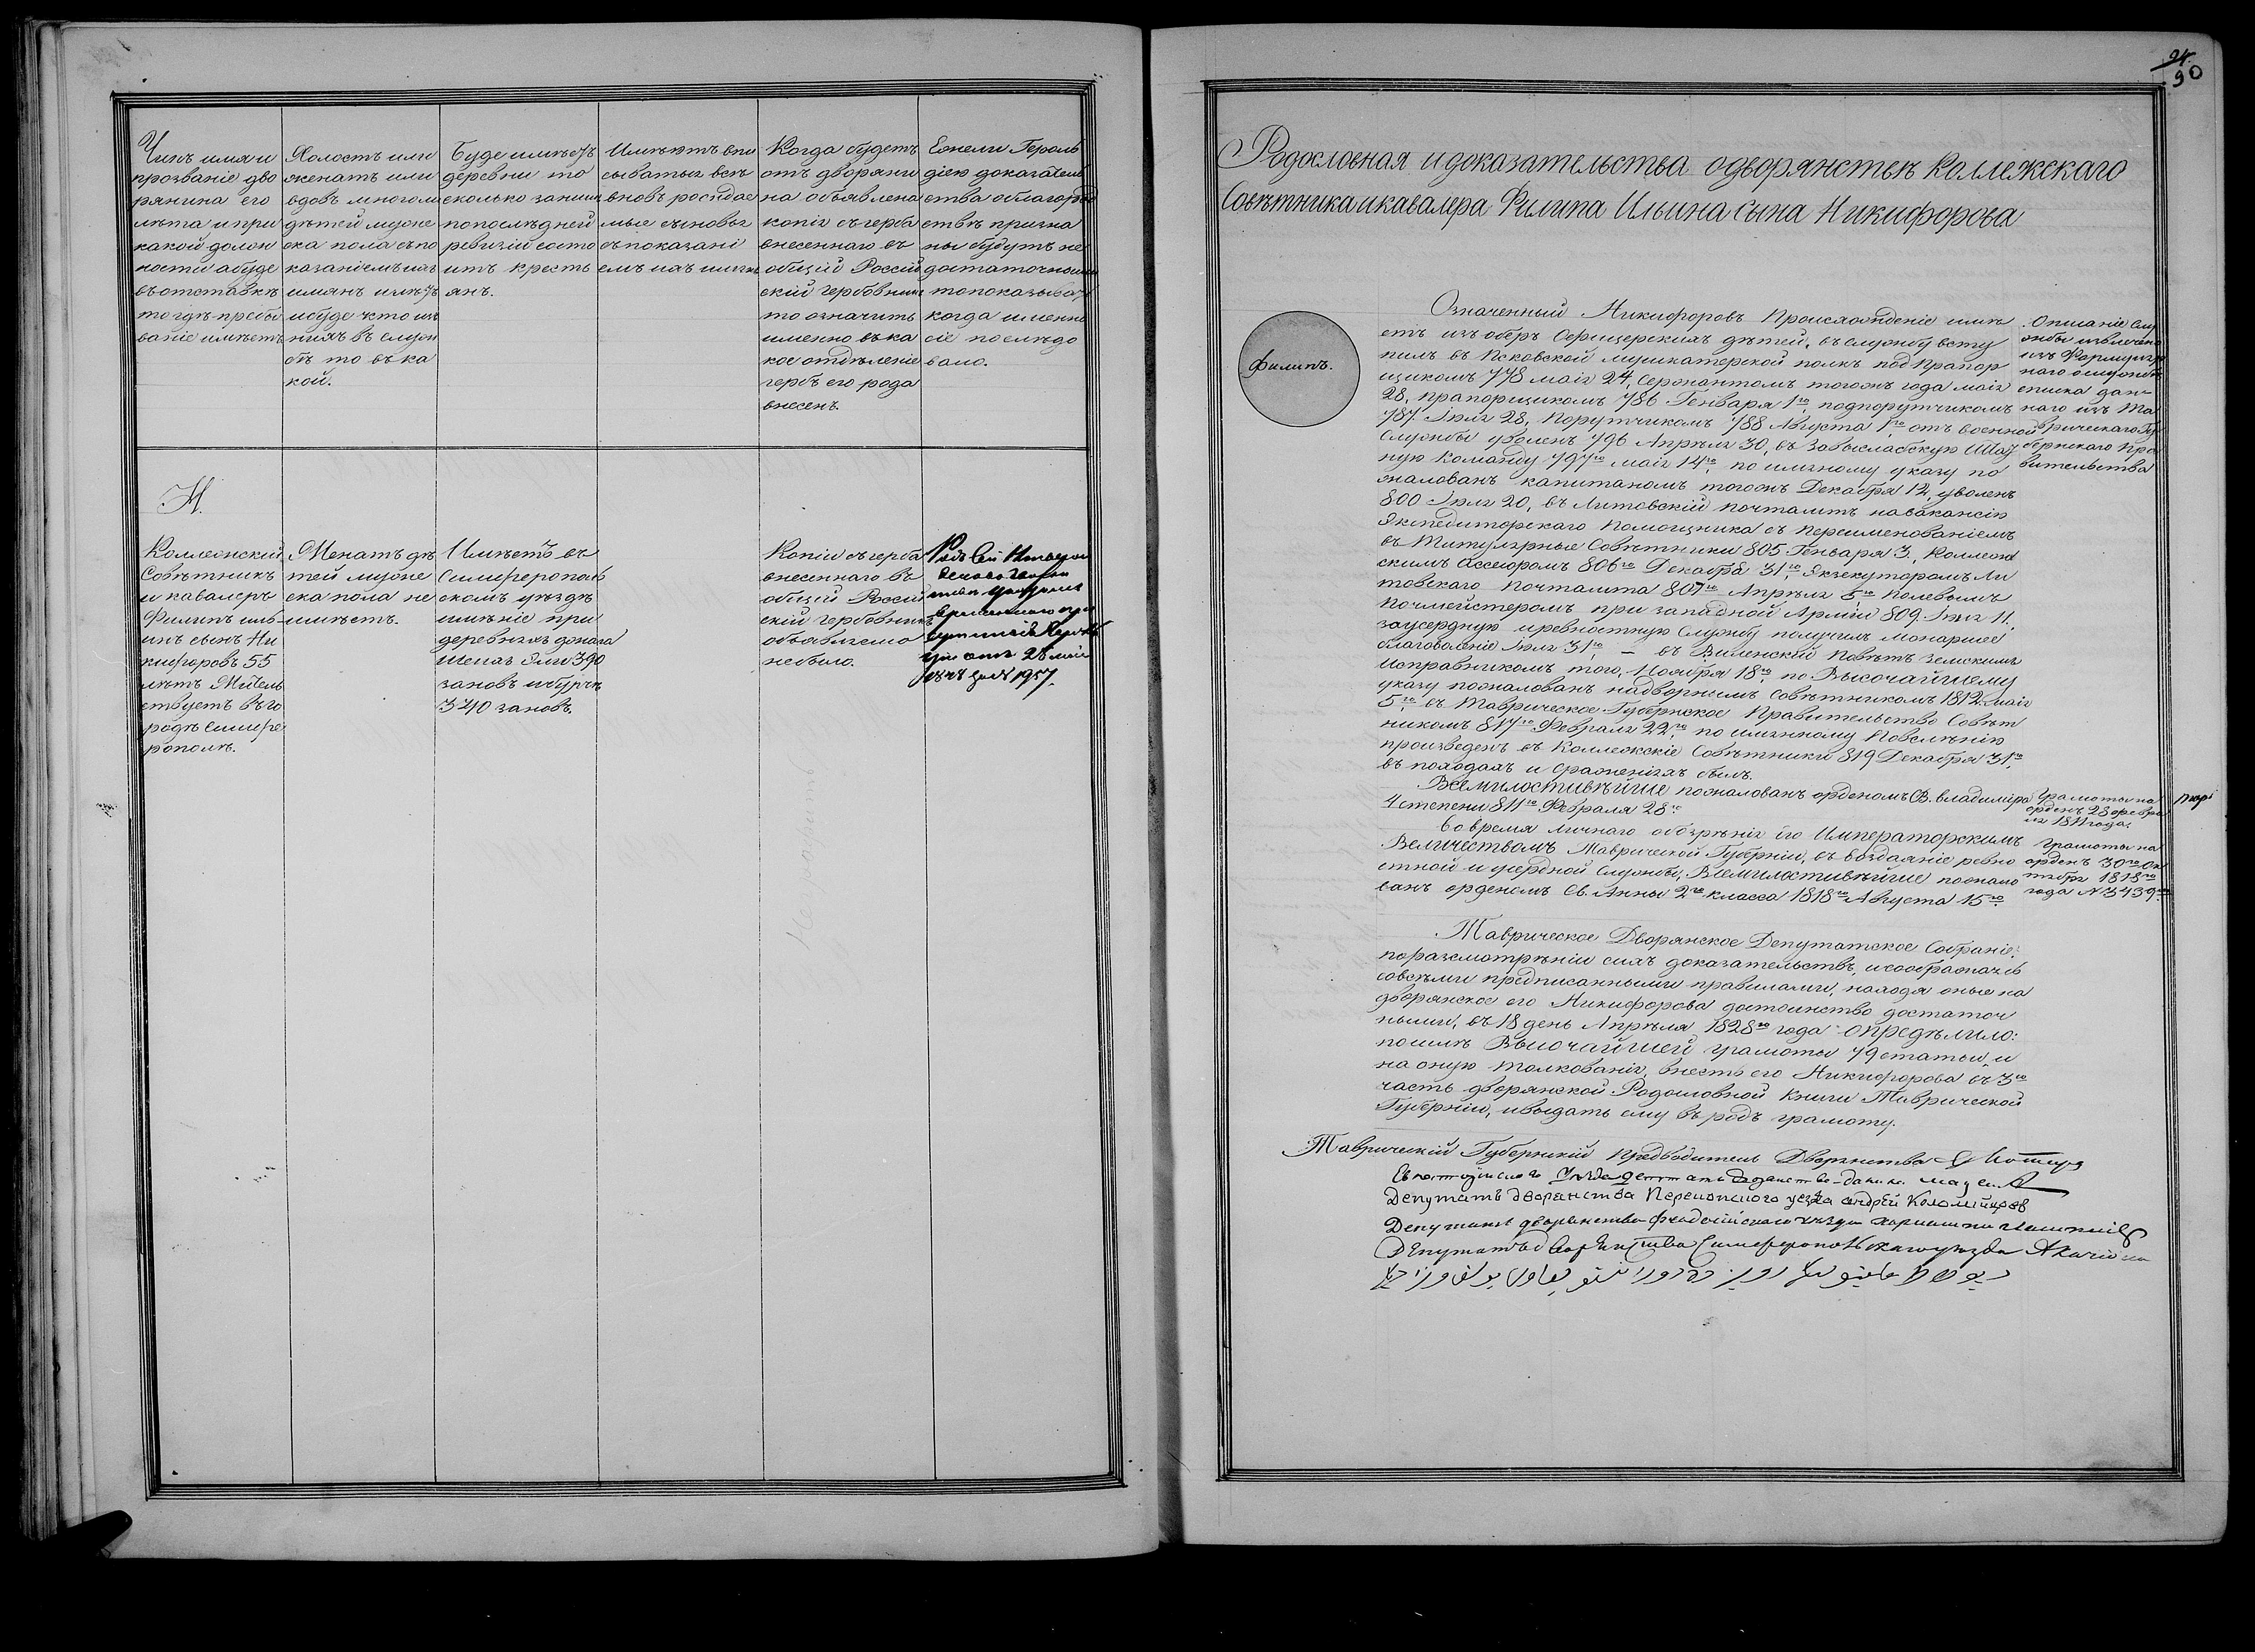 Чинъ имя и
прозваніе дво
рянина его
лѣта и при
какой долж
ности а буде
въ отставкѣ
то гдѣ пребы
ваніе имѣетъ
Холостъ или
женатъ или
вдовъ много ли
дѣтей муже
ска пола съ по
казаніемъ ихъ
имянъ и лѣтъ
и буде кто изъ
нихъ въ служ
бѣ то въ ка
кой.
Буде имѣетъ
деревни то
сколько за ним
по послѣдней
ревизіи состо
итъ кресть
янъ.
Имѣютъ впи
сыватья всѣ
вновь рождае
мые сыновья
съ показані
емъ ихъ имянъ
Когда будетъ
отъ дворяни
на объявлена
копія съ герба
внесеннаго въ
общій Россій
скій гербовник
то означить
именно въ ка
кое отдѣленіе
гербъ его рода
внесенъ.
Ежели Героль
діею доказатель
ства о благород
ствѣ призна
ны будутъ не
достаточными
то показывать
когда именно
сіе послѣдо
вало.
Н.
Коллежскій
Совѣтникъ
и кавалеръ
Филипъ иль
инъ сынъ Ни
кифоровъ 55
лѣтъ Житель
ствуетъ въ го
родѣ Симфе
рополѣ.
Женатъ дѣ
тей муже
ска пола не
имѣетъ.
Имѣетъ въ
Симферополь
скомъ уѣздѣ
имѣніе при
деревняхъ
Эли 390
340
Копіи съ герба
внесеннаго въ
общій Россій
скій гербовникъ
объявляемо
не было.
Родъ Сей
отъ 28 мая
1957.
90
Родословная и доказательства о дворянствѣ коллежскаго
Совѣтника и кавалера Филипа Ильина сына Никифорова
Филипъ.
Означенный Никифоровъ Происхожденіе имѣ
етъ изъ оберъ Офицерскихъ дѣтей, въ службу всту
пилъ въ Псковской мушкатерской полкъ подпрапор
щикомъ 778 маія 24, Сержантомъ тогожъ года маія
28, прапорщикомъ 786 Генваря 1го, подпорутчикомъ
787 Іюля 28, Порутчикомъ 788 Августа 1го, отъ военной
Службы уволенъ 796 Апрѣля 30, въ
ную Команду 797го маія 14го, по имянному указу по
жалованъ капитаномъ тогожъ Декабря 12, уволенъ
800 Іюля 20, въ Литовскій почтамтъ на вакансію
Экспедиторскаго Помощника съ Переименованіемъ
въ Титулярные Совѣтники 805 Генваря 3, Коллеж
скимъ Ассесоромъ 806го Декабря 31го, Экзекуторомъ Ли
товскаго Почтамта 807го Апрѣля 5го Полевымъ
Почмейстеромъ при западной Арміи 809 Іюля 11,
за усердную и ревностную Службу получилъ монаршее
благоволеніе Іюля 31го, — въ Виленскій повѣтъ земскимъ
Исправникомъ того, Ноября 18го, по Высочайшему
указу пожалованъ надворнымъ совѣтникомъ 1812 маія
5го, въ Таврическое Губернское Правительство Совѣт
никомъ 817го Февраля 22го, по имянному Повелѣнію
произведенъ въ Коллежскіе Совѣтники 819 Декабря 31го,
въ походахъ и сраженіяхъ былъ.
Описаніе слу
жбы извлечено
изъ Формуляр
наго о службѣ
списка дан-
наго изъ Та
врическаго Гу
бернскаго Пра
вительства
Всемилостивѣйше пожалованъ орденомъ Св. владиміра
4 степени 811го Февраля 28го.
Грамоты на
орденъ 28 февра
ля 1811 года.
Во время личнаго обозрѣнія Его Императорскимъ
Величествомъ Таврической Губерніи, въ воздаяніе ревно
стной и усердной службы, Всемилостивѣйше пожало
ванъ орденомъ Св. Анны 2го класса 1818го Августа 15го.
Грамоты на
орденъ 30го Ок
тября 1818го
года № 3439
Таврическое Дворянское Депутатское Собраніе:
по разсмотрѣніи сихъ доказательствъ, и соображаясь
со всѣми предписанными правилами, находя оные на
дворянское его Никифорова достоинство достаточ
ными, въ 18 день Апрѣля 1828го года опредѣлило:
по силѣ Высочайшей грамоты 79 статьи и
на оную толкованія, внесть его Никифорова въ 3ю
часть дворянской Родословной Книги Таврической
Губерніи, и выдать ему въ родъ грамоту.
Таврическій Губернскій Предводитель Дворянства
Депутатъ дворянства Перекопского уезда андрей Коломійцов
Депутатъ дворянства Феодосійскаго уѣзда
Депутатъ дворянства Симферопольскаго уѣзда